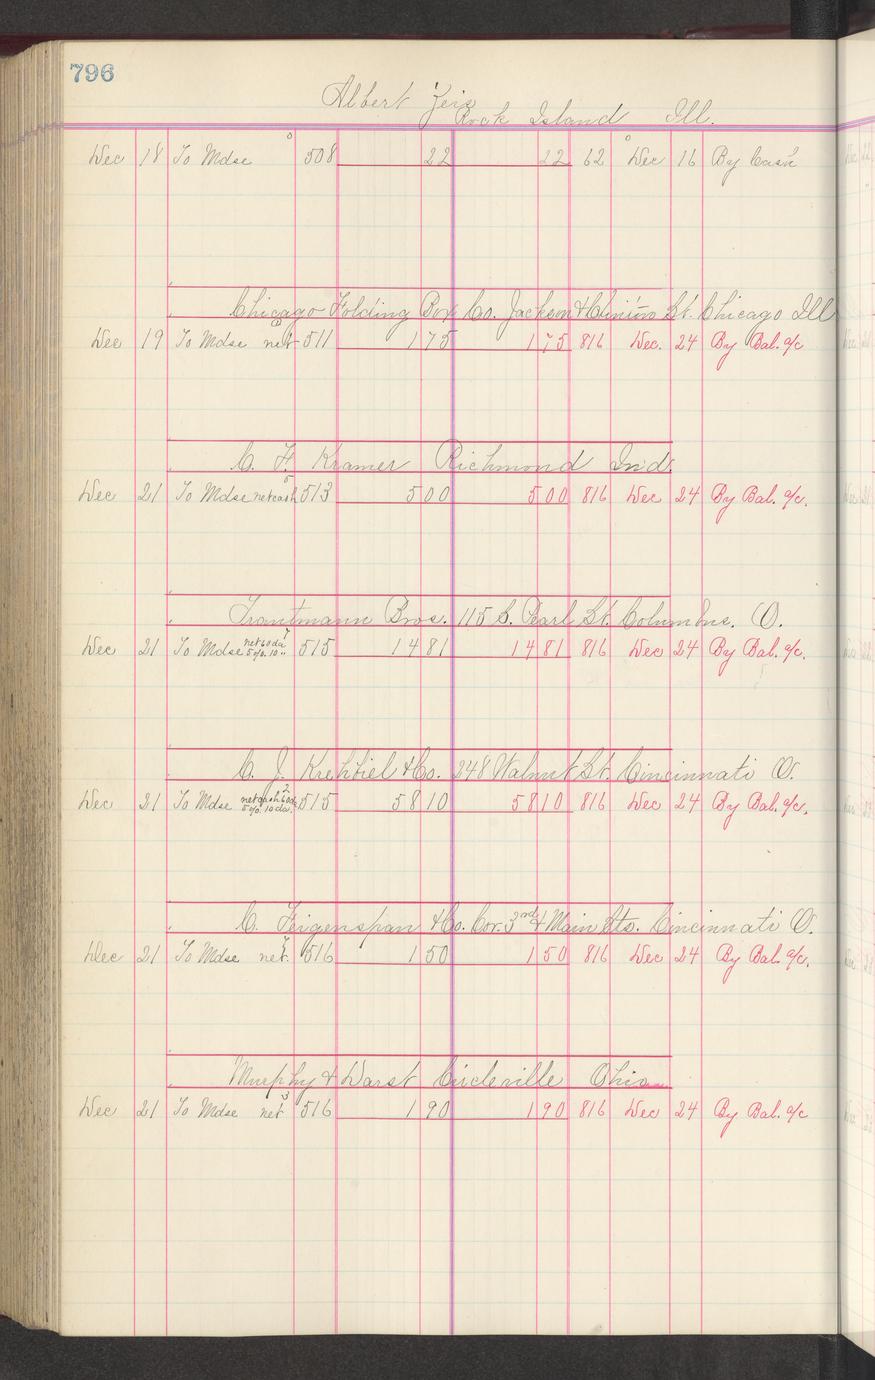 796
Albert Zeis
Rock Island Ill.
Dec 18 To Mdse 508 22 22 62 Dec 16 By Cash
Chicago Folding Box Co. Jackson & Clinton St. Chicago Ill
Dec 19 To Mdse net 511 175 175 816 Dec. 24 By Bal. a/c
C. F. Kramer Richmond Ind.
Dec 21 To Mdse net cash 513 500 500 816 Dec 24 By Bal. a/c.
Trautmann Bros. 115 S. Pearl St. Columbus. O.
Dec 21 To Mdse net 60 da 5%. 10 " 515 1481 1481 816 Dec 24 By Bal. a/c.
C. J. Krehbiel & Co. 248 Walnut St. Cincinnati O.
Dec 21 To Mdse net cash 60 da 5%. 10 da. 515 5810 5810 816 Dec 24 By Bal. a/c.
C. Feigenspan & Co. Cor. 3rd & Main Sts. Cincinnati O.
Dec 21 To Mdse net. 516 150 150 816 Dec 24 By Bal. a/c.
Murphy & Darst Circleville Ohio
Dec 21 To Mdse net 516 190 190 816 Dec 24 By Bal. a/c